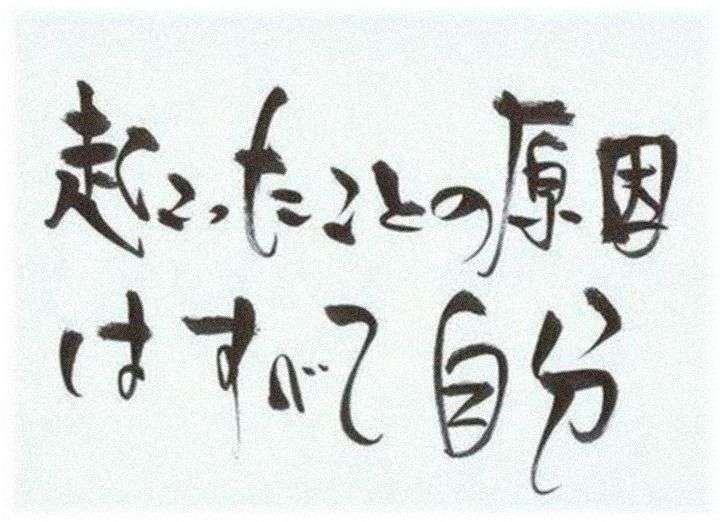 起こったことの原因
はすべて自分